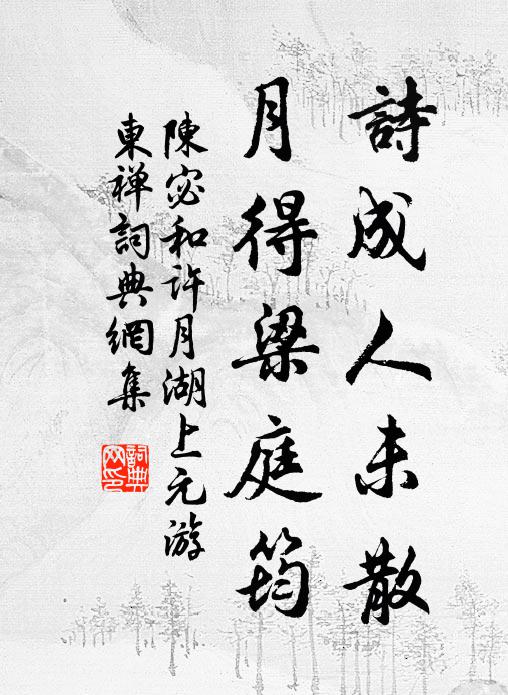 詩成人未散
月得梁庭筠
陳宓和許月湖上元游
東禅詞典網集
詞典网印